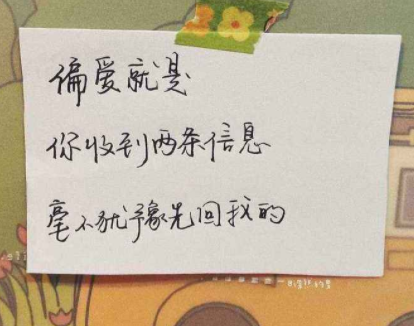 偏爱就是
你收到两条信息
毫不犹豫先回我的